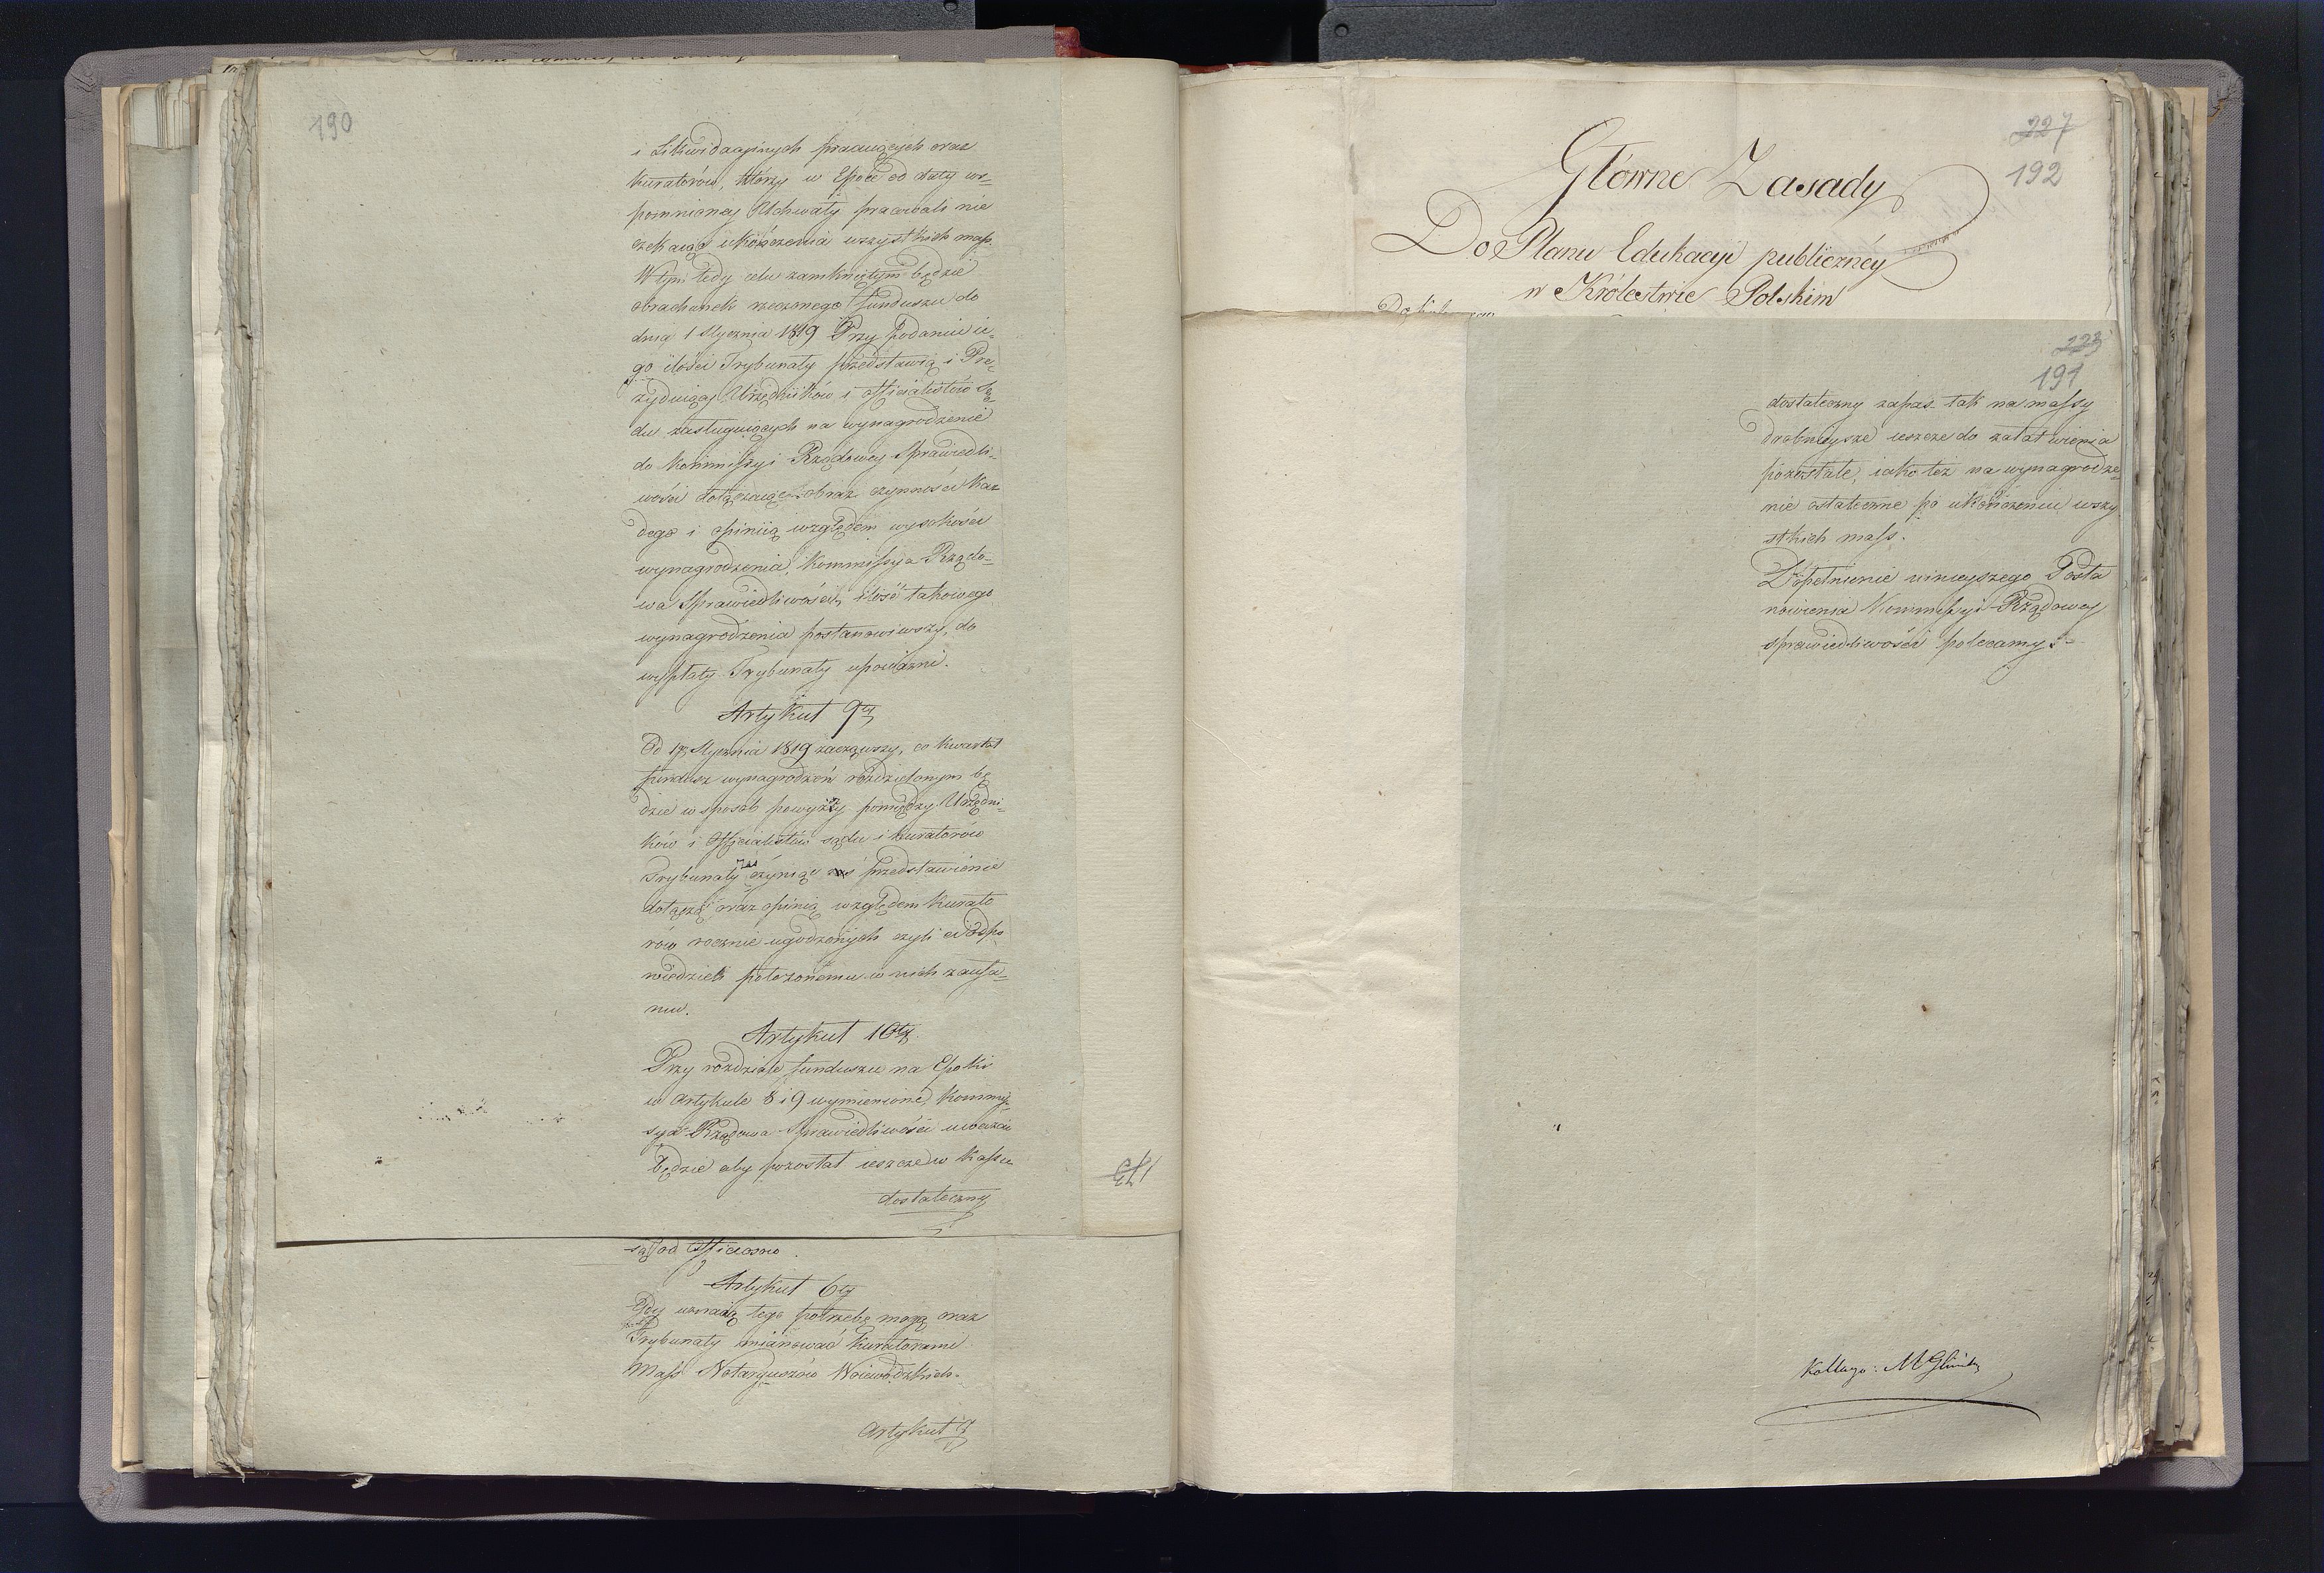 190
i Likwidacyjnych pracuiących oraz
kuratorów, którzy w Epoce od daty ws=
pomnioney Uchwały pracowali nie
czekaiąc ukończenia wszystkich mass.
W tym tedy celu zamkniętym będzie
obrachunek rzeczonego funduszu do
dnia 1 Stycznia 1819 Przy podaniu ie=
go ilości Trybunały przedstawią i Pre=
zyduiący Urzędników i officialistów Są=
du zasługuiących na wynagrodzenie
do Kommissyi Rządowey Sprawiedli=
wości dołączaiąc obraz czynności Każ
dego i opiniią względem wysokości
wynagrodzenia, Kommissya Rządo=
wa Sprawiedliwości, ilość takowego
wynagrodzenia postanowiwszy, do
wypłaty Trybunały upoważni.
Artykuł 9ty
Od 1go Stycznia 1819 zacząwszy, co kwartał
fundusz wynagrodzeń rozdzielonym bę
dzie w sposób powyższy pomiędzy Urzędni=
ków i Officialistów sądu i kuratorów
Trybunały zaś czyniąc przedstawienie
dołączą oraz opinią względem kurato
rów rocznie ugodzonych czyli ci odpo
wiedzieli położonemu w nich zaufa=
niu.
Artykuł 10ty.
Przy rozdziale funduszu na Epoki
w Artykule 8 i 9 wymienione, Kommis=
sya Rządowa Sprawiedliwości uważać
będzie aby pozostał ieszcze w Kassie
dostateczny
sąd od
Artykuł 6ty
Gdy uznaią tego potrzebę mogą oraz
Trybunały mianować kuratorami
Mass Notaryuszów Woiewódzkich.
Artykuł 7
173
227
192
Główne Zasady
Do Planu Edukacyi publiczney
w Królestwie Polskim
223
191
dostateczny zapas tak na massy
drobnieysze ieszcze do załatwienia
pozostałe, iako też na wynagrodze=
nie ostateczne po ukończeniu wszy
stkich mass.
Dopełnienie ninieyszego Posta
nowienia Kommissyi Rządowey
sprawiedliwości polecamy.